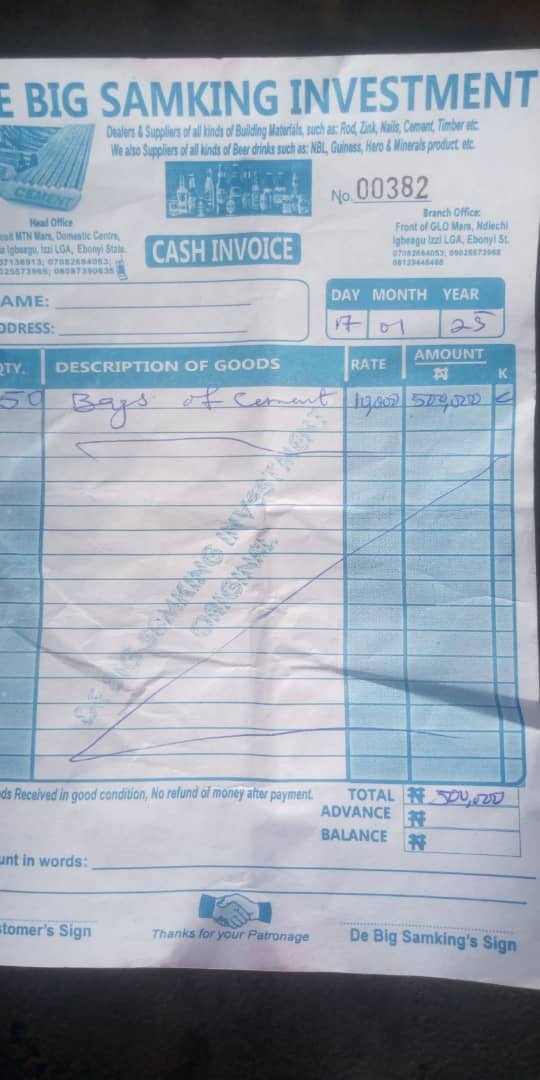 E BIG SAMKING INVESTMENT
Dealers & Suppliers of all kinds of Building Materials, such as: Rod, Zink, Nails, Cement, Timber etc.
We also Suppliers of all kinds of Beer drinks such as: NBL, Guiness, Hero & Minerals product. etc.
CEMENT
No. 00382
Head Office
MTN Mars, Domestic Centre,
Igbeagu, Izzi LGA, Ebonyi State.
CASH INVOICE
Branch Office:
Front of GLO Mars, Ndiechi
Igbeagu Izzi LGA, Ebonyi St.
AME:
DDRESS:
DAY MONTH YEAR
17 01 25
QTY. DESCRIPTION OF GOODS RATE AMOUNT
₦ K
50 Bags of Cement 10,000 500,000
DE BIG SAMKING INVESTMENT
ORIGINAL
ds Received in good condition, No refund of money after payment.
TOTAL ₦ 500,000
ADVANCE ₦
BALANCE ₦
unt in words:
stomer's Sign
Thanks for your Patronage
De Big Samking's Sign